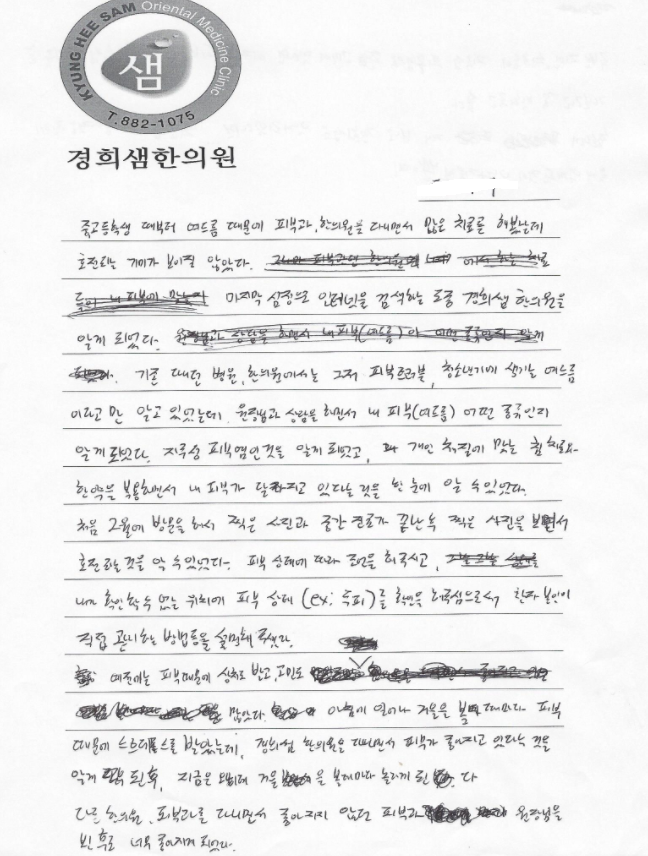 KYUNG HEE SAM Oriental Medicine Clinic
샘
T.882-1075
경희샘한의원
중고등학생 때부터 여드름 때문에 피부과, 한의원을 다니면서 많은 치료를 해봤는데
호전되는 기미가 보이질 않았다.
마지막 심정으로 인터넷을 검색하는 도중 경희샘 한의원을
알게 되었다.
기존 다녔던 병원, 한의원에서는 그저 피부트러블, 청소년기에 생기는 여드름
이라고만 알고 있었는데, 원장님과 상담을 하면서 내 피부(여드름) 어떤 종류인지
알게 되었다. 지루성 피부염인것을 알게 되었고, 개인 체질에 맞는 침 치료와
한약을 복용하면서 내 피부가 달라지고 있다는 것을 한 눈에 알 수 있었다.
처음 2월에 방문을 해서 찍은 사진과 중간 진료가 끝난 후 찍은 사진을 보면서
호전되는 것을 알 수 있었다. 피부 상태에 따라 조언을 해주시고,
내가 확인할 수 없는 위치에 피부 상태 (ex: 등피)를 확인을 해주심으로써 환자 본인이
직접 관리하는 방법등을 설명해 주셨다.
예전에는 피부때문에 상처도 받고, 고민도
많았다. 아침에 일어나 거울을 볼 때마다 피부
때문에 스트레스를 받았는데, 경희샘 한의원을 다니면서 피부가 좋아지고 있다는 것을
알게 된 후, 지금은 오히려 거울을 볼때마다 놀라게 된다
다른 한의원, 피부과를 다니면서 좋아지지 않던 피부가 원장님을
뵌 후로 너무 좋아지게 되었다.